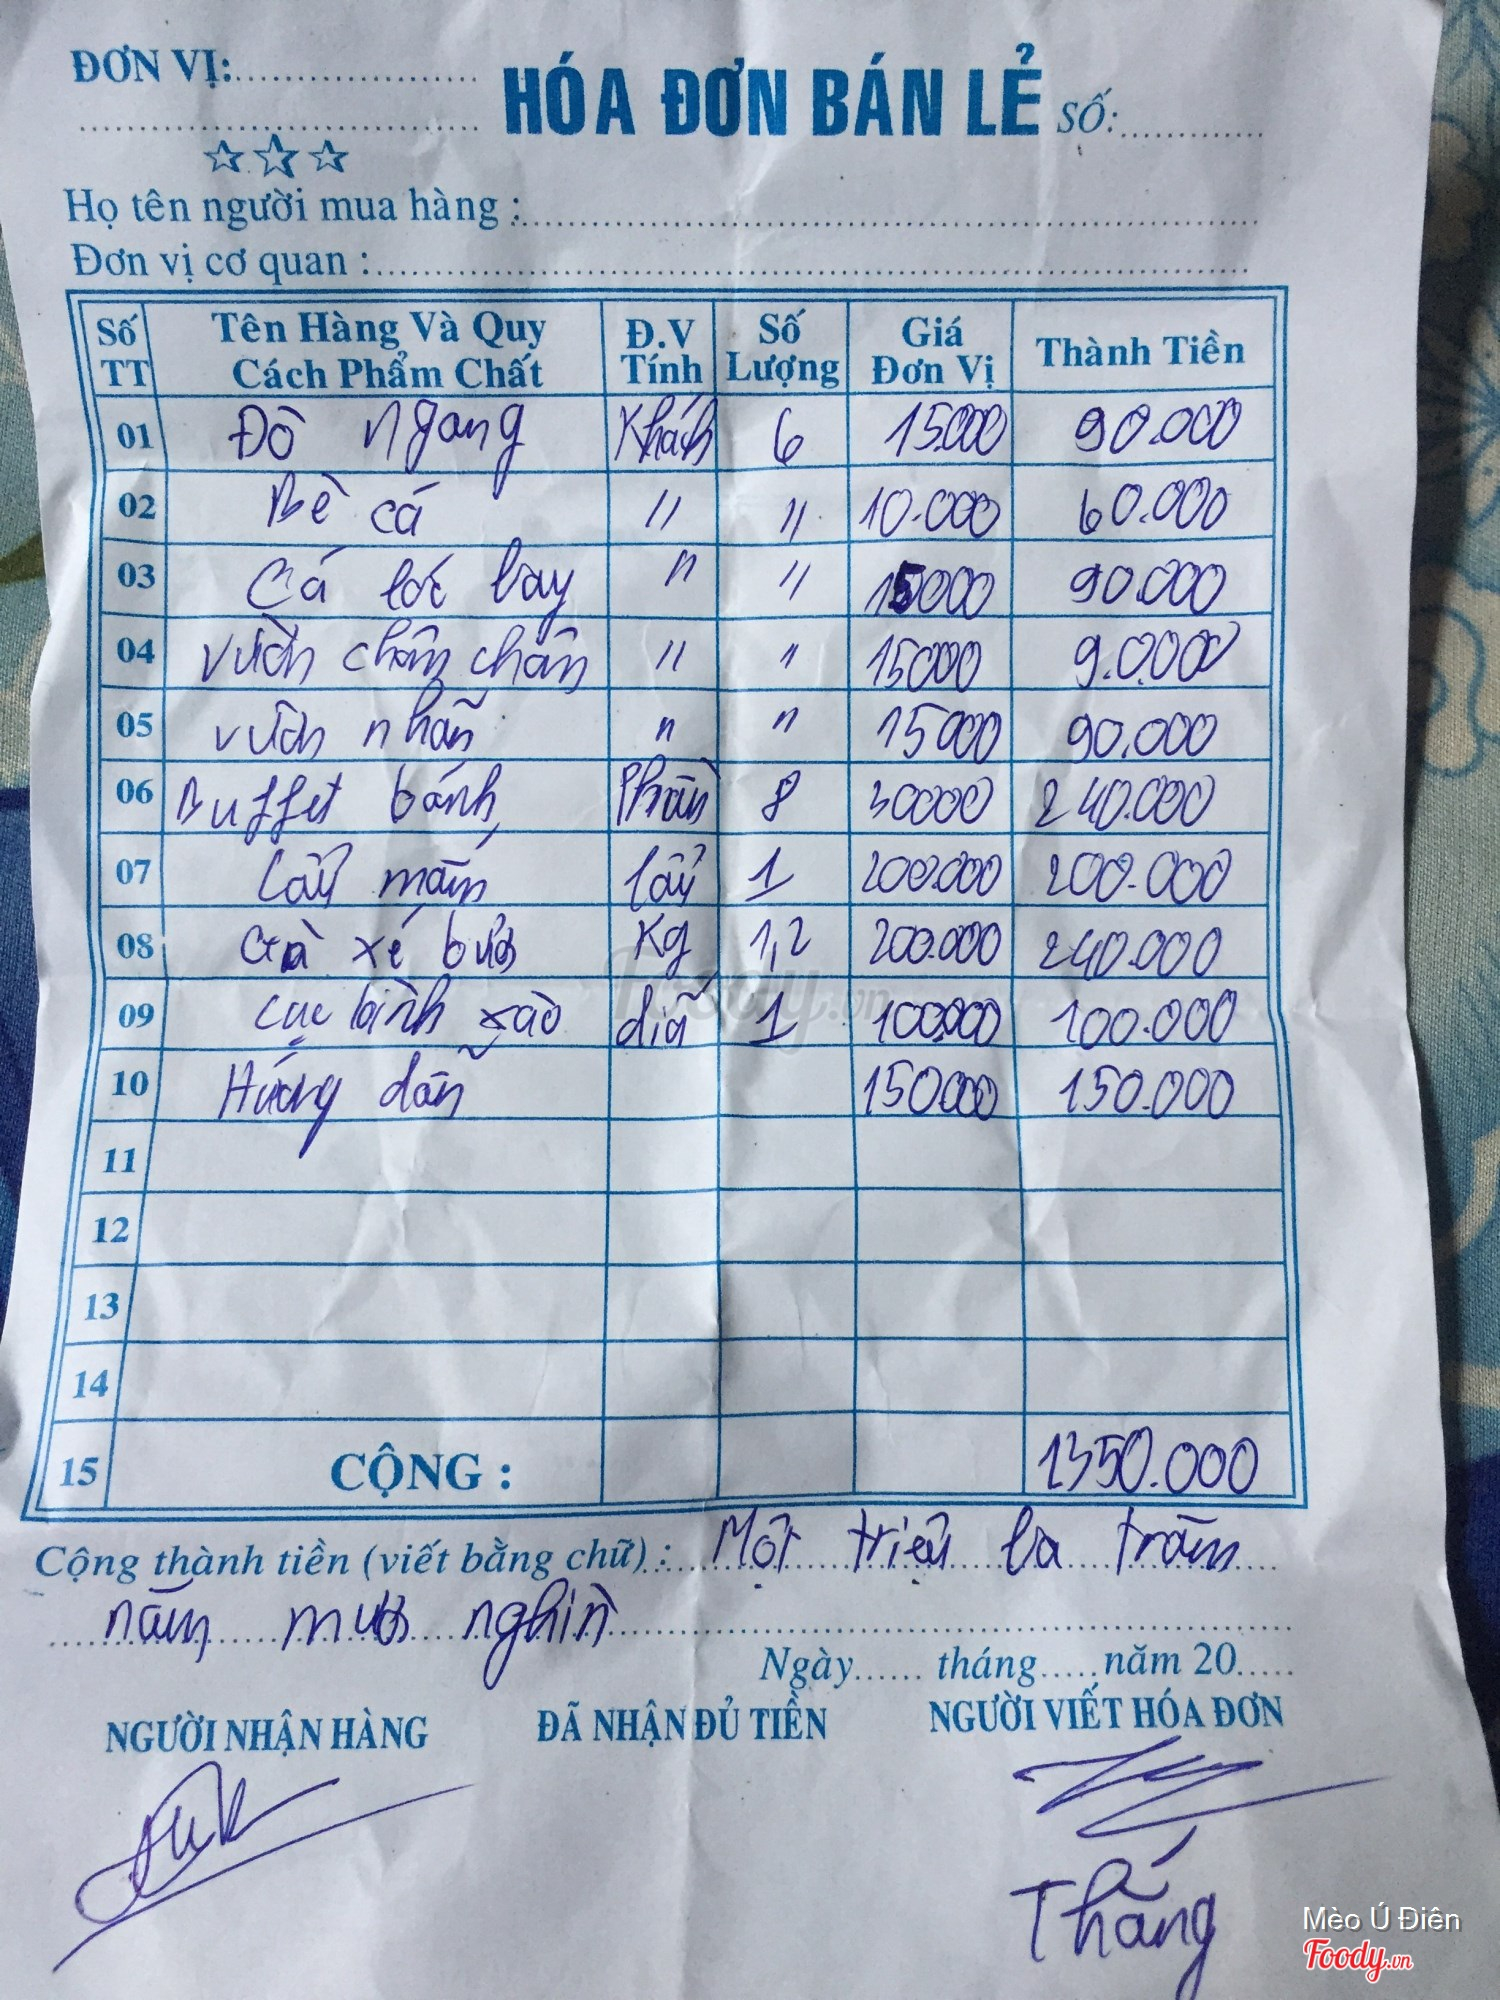 ĐƠN VỊ:
HÓA ĐƠN BÁN LẺ SỐ:
Họ tên người mua hàng :
Đơn vị cơ quan :
Số TT Tên Hàng Và Quy Cách Phẩm Chất Đ.V Tính Số Lượng Giá Đơn Vị Thành Tiền
01 Đò ngang Khách 6 15.000 90.000
02 Bè cá " " 10.000 60.000
03 Cá lóc bay " " 15000 90.000
04 vườn chôm chôm " " 15000 90.000
05 vườn nhãn " " 15000 90.000
06 Buffet bánh Phần 8 30000 240.000
07 Lẩu mắm lẩu 1 200.000 200.000
08 Gà xé bưởi Kg 1,2 200.000 240.000
09 Lục bình xào dĩa 1 100.000 100.000
10 Hướng dẫn 150.000 150.000
11
12
13
14
15 CỘNG : 1350.000
Cộng thành tiền (viết bằng chữ) : Một triệu ba trăm
năm mươi nghìn
Ngày...... tháng..... năm 20.....
NGƯỜI NHẬN HÀNG ĐÃ NHẬN ĐỦ TIỀN NGƯỜI VIẾT HÓA ĐƠN
Thắng
Mèo Ú Điên
Foody.vn